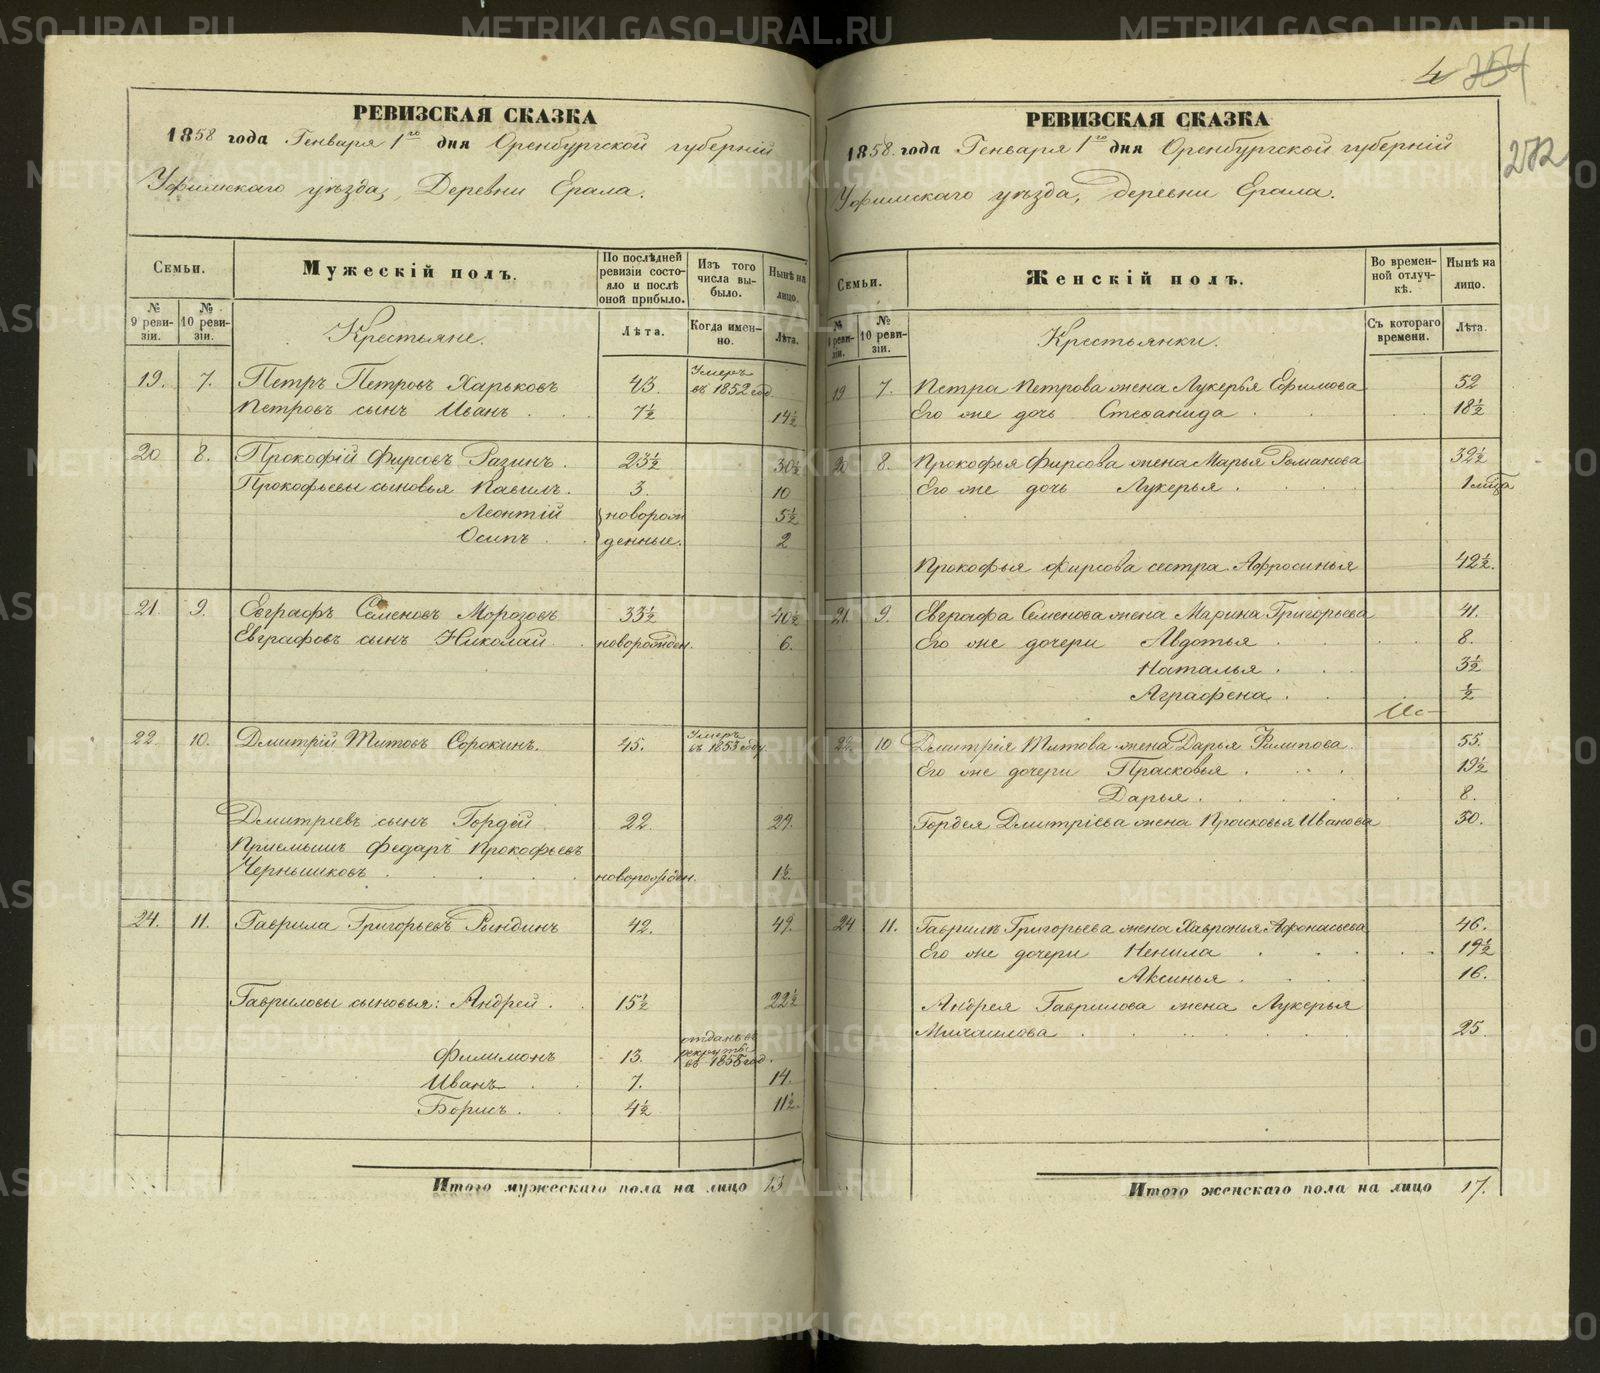 4 254
272
РЕВИЗСКАЯ СКАЗКА
1858 года Генваря 1го дня Оренбургской губерніи
Уфимскаго уѣзда, Деревни Ерала.
Семьи.
Мужескій полъ.
По послѣдней ревизіи состояло и послѣ оной прибыло.
Изъ того числа выбыло.
Нынѣ на лицо.
№ 9 ревизіи.
№ 10 ревизіи.
Крестьяне.
Лѣта.
Когда именно.
Лѣта.
19. 7. Петръ Петровъ Харьковъ 45. Умеръ въ 1852 год
Петровъ сынъ Иванъ . . 7½ 14½
20 8. Прокофій Фирсовъ Разинъ . 23½ 30½
Прокофьевы сыновья Павилъ . 3. 10
Леонтій новорож 5½
Осипъ . . денные. 2
21. 9. Евграфъ Семеновъ Морозовъ 33½ 40½
Евграфовъ сынъ Николай . новорожден. 6.
22. 10. Дмитрій Титовъ Сорокинъ. 45. Умеръ въ 1853 году.
Дмитріевъ сынъ Гордей 22. 29.
Приемышъ Федаръ Прокофьевъ
Чернышковъ . . . новорожден. 1½.
24. 11. Гаврила Григорьевъ Рындинъ 42. 49.
Гавриловы сыновья: Андрей . 15½ 22½
Филимонъ 13. отданъ въ рекруты въ 1855 год.
Иванъ . . 7. 14.
Борисъ . . 4½ 11½.
Итого мужескаго пола на лицо 13
РЕВИЗСКАЯ СКАЗКА
1858. года Генваря 1го дня Оренбургской губерніи
Уфимскаго уѣзда, деревни Ерала.
Семьи.
Женскій полъ.
Во временной отлучкѣ.
Нынѣ на лицо.
№ 9 ревизіи.
№ 10 ревизіи.
Крестьянки.
Съ котораго времени.
Лѣта.
19 7. Петра Петрова жена Лукерья Ефимова 52
Его же дочь Стефанида . . 18½
20 8. Прокофья Фирсова жена Марья Романова 32½
Его же дочь Лукерья . . . 1 мѣсяца
Прокофья Фирсова сестра Афросинья 42½.
21. 9. Евграфа Семенова жена Марина Григорьева 41.
Его же дочери Авдотья . . 8.
Наталья . . 3½
Аграфена . . ½
22. 10 Дмитрія Титова жена Дарья Филипова. 55.
Его же дочери Прасковья . . . 19½
Дарья . . . 8.
Гордея Дмитріева жена Прасковья Иванова 30.
24 11. Гаврилы Григорьева жена Хавронья Афонасьева 46.
Его же дочери Ненила . . . 19½
Аксинья . . . 16.
Андрея Гаврилова жена Лукерья
Михаилова . . . 25.
Итого женскаго пола на лицо 17.
METRIKI.GASO-URAL.RU